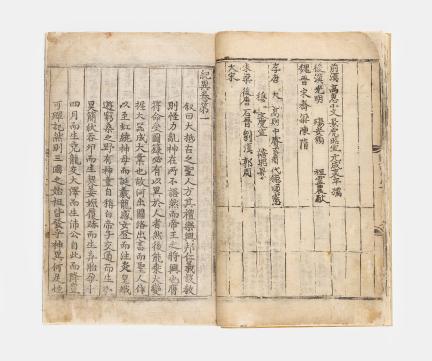 前漢 高惠小文景虎昭宣元成哀平孺
魏晉宋齊梁陳隋
李唐
朱梁 後唐 石晉 劉漢 郭周
大宋
紀異卷第一
叙曰大抵古之聖人方其禮樂興邦仁義設敎
則怪力亂神在所不語然而帝王之將興也膺
符命受圖籙必有以異於人者然後能乘大變
握大器成大業也故河出圖洛出書而聖人作
以至虹繞神母而誕羲龍感女登而注炎皇娥
遊窮桑之野有神童自稱白帝子交通而生小
昊簡狄吞卵而生契姜嫄履跡而生弃胎孕十
四月而生堯龍交大澤而生沛公自此而降豈
可殫記然則三國之始祖皆發乎神異何足怪